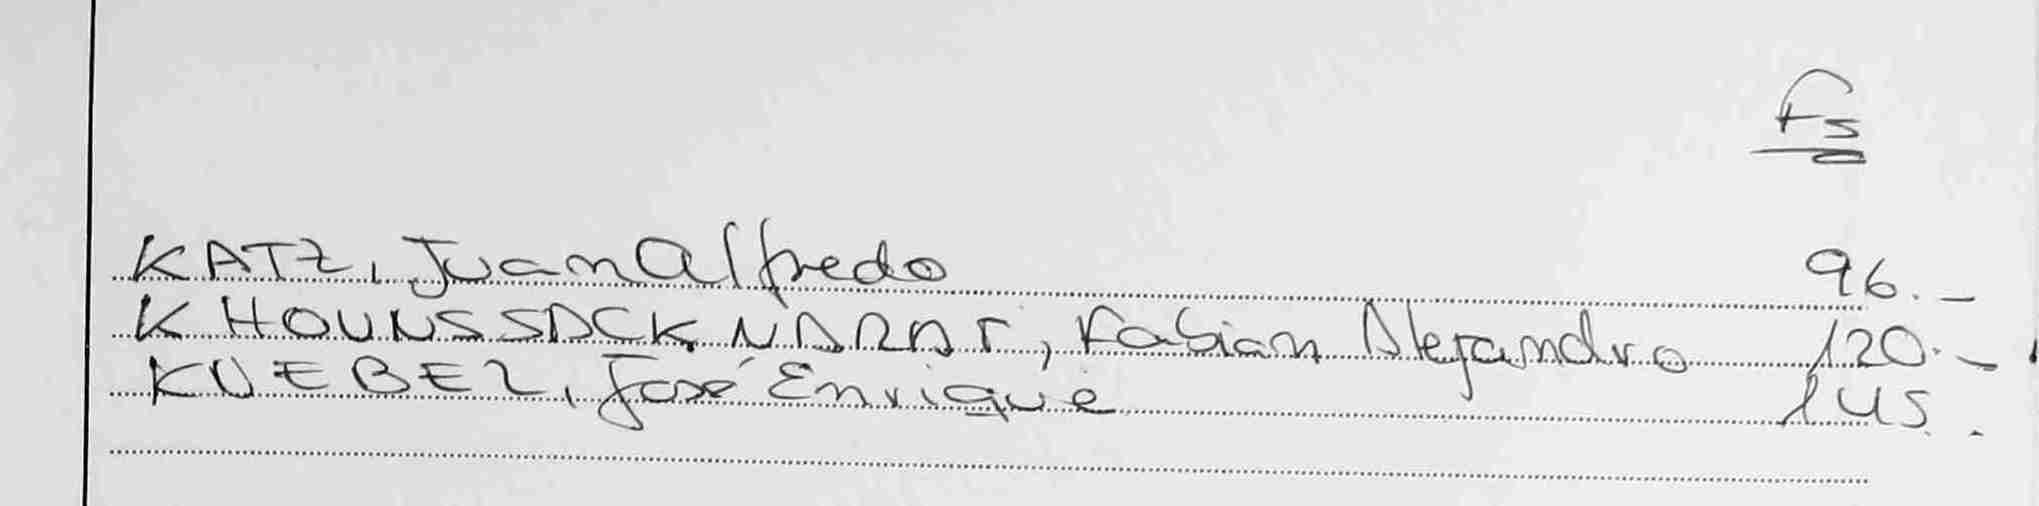 Fs
KATZ, Juan Alfredo 96.-
KHOUNSSACKNARAT, Fabian Alejandro 120.-
KUEBEL, José Enrique 145.-